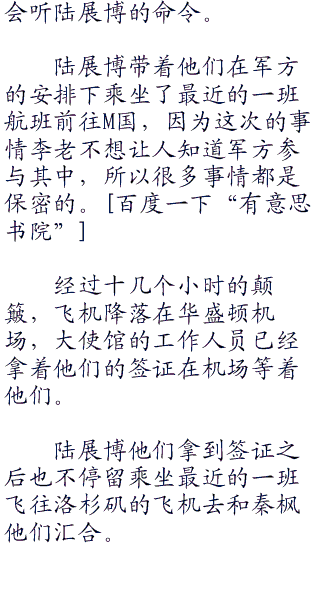 会听陆展博的命令。
陆展博带着他们在军方
的安排下乘坐了最近的一班
航班前往M国，因为这次的事
情李老不想让人知道军方参
与其中，所以很多事情都是
保密的。[百度一下“有意思
书院”]
经过十几个小时的颠
簸，飞机降落在华盛顿机
场，大使馆的工作人员已经
拿着他们的签证在机场等着
他们。
陆展博他们拿到签证之
后也不停留乘坐最近的一班
飞往洛杉矶的飞机去和秦枫
他们汇合。